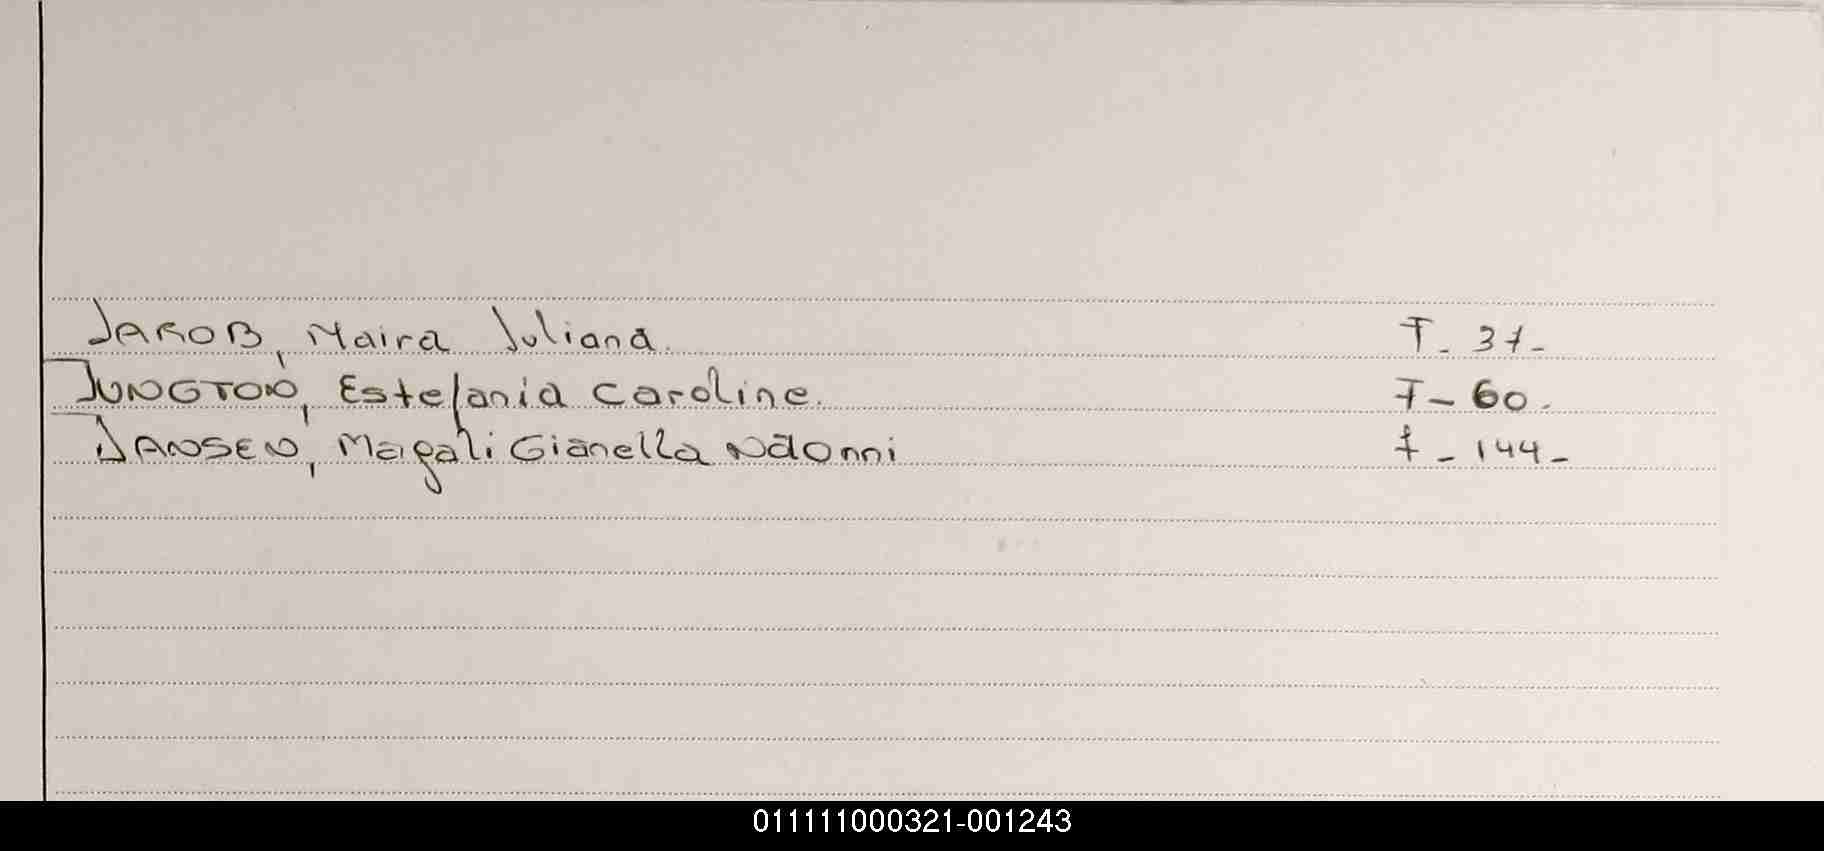 JAKOB, Maira Juliana. T - 37 -
JUNGTON, Estefania Caroline. F - 60.
JANSEN, Magali Gianella Naomi f - 144 -
011111000321-001243